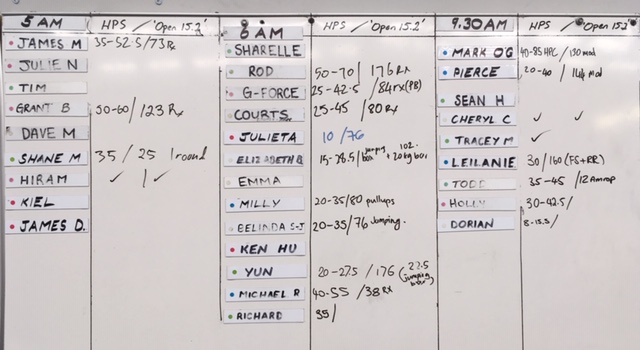 5 AM HPS / 'Open 15.2'
JAMES M 35-52.5/73 Rx
JULIE N
TIM
GRANT B 50-60/123 Rx
DAVE M
SHANE M 35/25 1 round
HIRAM ✓ / ✓
KIEL
JAMES D.
6 AM HPS / 'Open 15.2'
SHARELLE
ROD 50-70/176 Rx
G-FORCE 25-42.5/84rx(PB)
COURTS 25-45/80 Rx
JULIETA 10/76
ELIZABETH B 15-28.5/ jumping 102.
+ 20kg
EMMA
MILLY 20-35/80 pullups
BELINDA S-J 20-35/76 Jumping.
KEN HU
YUN 20-27.5/176 (22.5
jumping
MICHAEL R 40-55/38 Rx
RICHARD 35/
9.30 AM HPS / 'Open 15.2'
MARK O'G 40-85 HPC/130 mod
PIERCE 20-40/144 mod
SEAN H
CHERYL C ✓ ✓
TRACEY M ✓
LEILANIE 30/160 (FS+RR)
TODD 35-45/12 Amrap
HOLLY 30-42.5/
DORIAN 8-15.5/